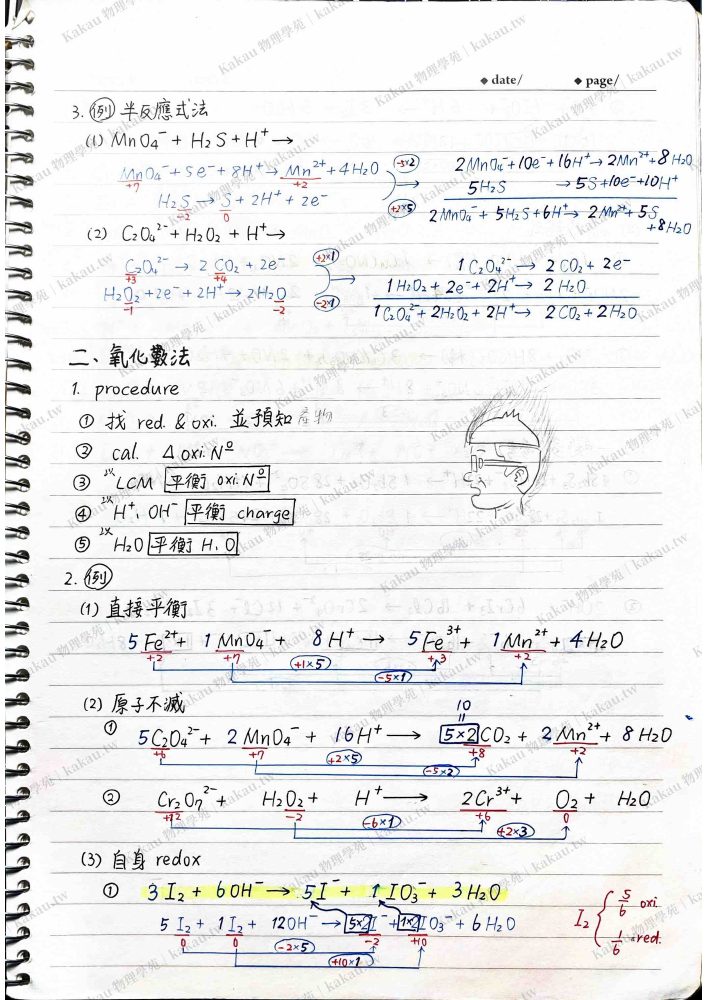 ◆ date/ ◆ page/
3. 例 半反應式法
(1) MnO₄⁻ + H₂S + H⁺ →
MnO₄⁻ + 5e⁻ + 8H⁺ → Mn²⁺ + 4H₂O
+7 +2
H₂S → S + 2H⁺ + 2e⁻
-2 0
-5×2
+2×5
2MnO₄⁻ + 10e⁻ + 16H⁺ → 2Mn²⁺ + 8H₂O
5H₂S → 5S + 10e⁻ + 10H⁺
2MnO₄⁻ + 5H₂S + 6H⁺ → 2Mn²⁺ + 5S + 8H₂O
(2) C₂O₄²⁻ + H₂O₂ + H⁺ →
C₂O₄²⁻ → 2CO₂ + 2e⁻
+3 +4
H₂O₂ + 2e⁻ + 2H⁺ → 2H₂O
-1 -2
+2×1
-2×1
1C₂O₄²⁻ → 2CO₂ + 2e⁻
1H₂O₂ + 2e⁻ + 2H⁺ → 2H₂O
1C₂O₄²⁻ + 2H₂O₂ + 2H⁺ → 2CO₂ + 2H₂O
二、氧化數法
1. procedure
① 找 red. & oxi. 並預知產物
② cal. Δ oxi. Nº
③ 2X LCM 平衡 oxi. Nº
④ 2X H⁺、OH⁻ 平衡 charge
⑤ 2X H₂O 平衡 H、O
2. 例
(1) 直接平衡
5Fe²⁺ + 1MnO₄⁻ + 8H⁺ → 5Fe³⁺ + 1Mn²⁺ + 4H₂O
+2 +7 +3 +2
+1×5
-5×1
(2) 原子不滅
10
=
① 5C₂O₄²⁻ + 2MnO₄⁻ + 16H⁺ → 5×2 CO₂ + 2Mn²⁺ + 8H₂O
+6 +7 +8 +2
+2×5
-5×2
② Cr₂O₇²⁻ + H₂O₂ + H⁺ → 2Cr³⁺ + O₂ + H₂O
+12 -2 +6 0
-6×1
+2×3
(3) 自身 redox
① 3I₂ + 6OH⁻ → 5I⁻ + 1IO₃⁻ + 3H₂O
5I₂ + 1I₂ + 12OH⁻ → 5×2 I⁻ + 1×2 IO₃⁻ + 6H₂O
0 0 -2 +10
-2×5
+10×1
I₂ { 5/6 oxi.
1/6 red.
Kakau 物理學苑 | kakau.tw